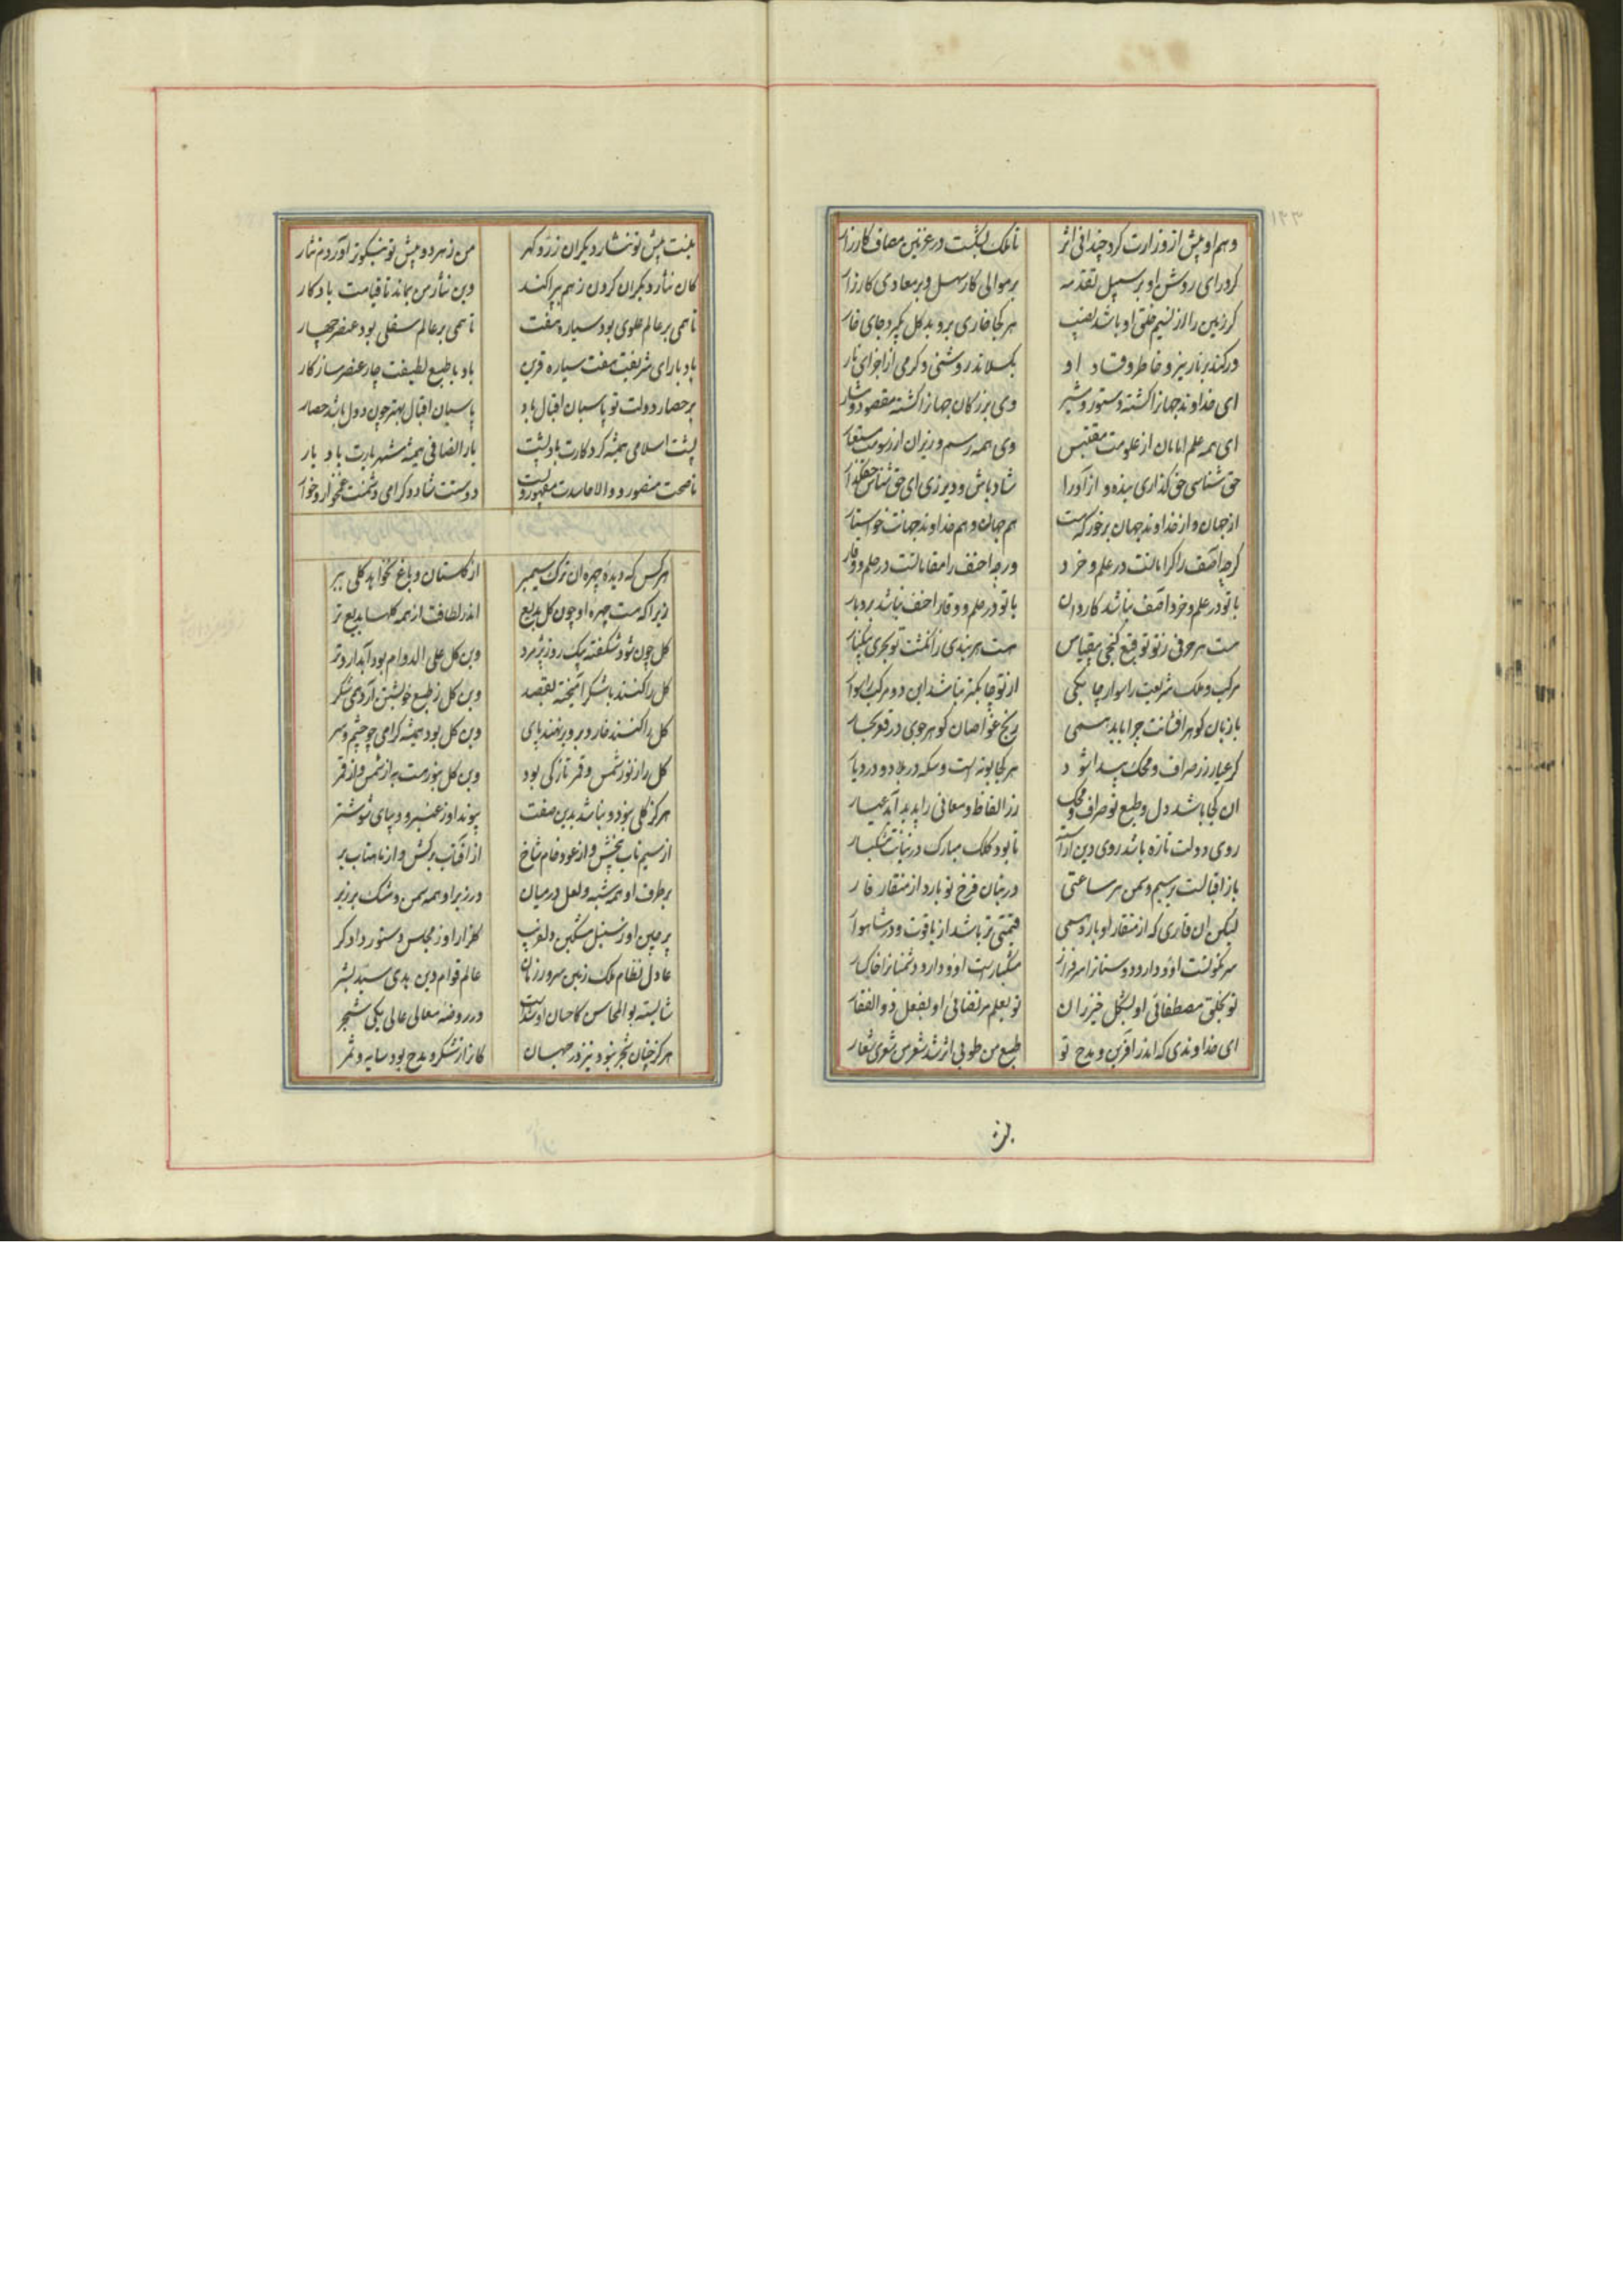 ۱۲۳
وهم او پیش از وزارت کرد چندانی اثر تا ملک بنشست در غزنین مصاف کارزار
کرد رای روشن او بر سبیل تقدمه بر موالی کار سهل و بر معادی کار زار
کر زمین را از نسیم خلق او باشد نصیب هر کجا خاری بروید کل بگیرد جای خار
ور کند بر نار تیز و خاطر وقاد او بگسلاند روشنی و کرمی از اجزای نار
ای خداوند جهانرا کشته دستور و مشیر وی بزرکان جهانرا کشته مقصود و مشار
ای همه علم امامان از علومت مقتبس وی همه رسم وزیران از رسومت مستعار
حق شناسی حق کذاری بنده و آزاد را شاد باش و دیر زی ای حق شناس حقکذار
از جهان و از خداوند جهان برخور که هست هم جهان و هم خداوند جهانت خواستار
کرچه آصف را کرامات است در علم و خرد ورچه احنف را مقامات است در حلم و وقار
با تو در علم و خرد آصف نباشد کاردان با تو در حلم و وقار احنف نباشد بردبار
هست هر حرفی ز توقیع تو کنجی بیقیاس هست هر بندی ز انکشت تو بحری بیکنار
مرکب و ملک شریعت را سوار چابکی از تو چابکتر نباشد این دو مرکب را سوار
با زبان کوهر افشانت چرا باید همی رنج غواصان کوهر جوی در قعر بحار
کر عیار زر صراف و محک پیدا شود هر کجا بوته است و سکه در بلاد و در دیار
آن کجا باشد دل و طبع تو صراف و محک زر الفاظ و معانی را پدید آید عیار
روی دولت تازه باشد روی دین آراسته تا بود کلک مبارک در بنانت مشکبار
باز اقبالت بر سیم و سمن هر ساعتی در بنان فرخ تو بارد از منقار قار
لیکن آن قاری که از منقار او بارد همی قیمتی تر باشد از یاقوت و در شاهوار
سرنکونست او و دارد دوستانرا سرفراز مشکبارست او و دارد دشمنانرا خاکسار
تو بخلق مصطفائی او بشکل خیزران تو بعلم مرتضائی او بفعل ذوالفقار
ای خداوندی که اندر آفرین و مدح تو طبع من طوبی اثر شد شعر من شعری شعار
بنت
بنت پیش تو نثار دیکران زر و کهر من ز هر دو پیش تو نیکوتر آوردم نثار
کان نثار دیکران کردون ز هم بپراکند وین نثار من بماند تا قیامت یادکار
تا همی بر عالم علوی بود سیاره هفت تا همی بر عالم سفلی بود عنصر چهار
باد با رای شریفت هفت سیاره قرین باد با طبع لطیفت چار عنصر سازکار
بر حصار دولت تو پاسبان اقبال باد پاسبان اقبال بهتر چون دول باشد حصار
پشت اسلامی همیشه کردکارت باد پشت یار انصافی همیشه شهریارت باد یار
ناصحت منصور و والا حاسدت مقهور و پست دوستت شاد و کرامی دشمنت غمخوار و خوار
هر کس که دیده چهره آن ترک سیمبر از کلستان و باغ نخواهد کلی ببر
زیرا که هست چهره او چون کل بدیع اندر لطافت از همه کلها بدیع تر
کل چون شود شکفته بیک روز پژمرد وین کل علی الدوام بود آبدار و تر
کل را کنند با شکر آمیخته بقصد وین کل ز طبع خویشتن آرد همی شکر
کل را کنند خار و برو برنهند پای وین کل بود همیشه کرامی چو چشم و سر
کل را ز نور شمس و قمر تازکی بود وین کل بنورست به از شمس و از قمر
هرکز کلی نبود و نباشد بدین صفت پیوند او ز عنبر و دیبای شوشتر
از سیم ناب بیخش و از عود خام شاخ از آفتاب برکش و از ماهتاب بر
بر طرف او همه شبه و لعل در میان در زیر او همه سمن و مشک بر زبر
پرچین او ز سنبل مشکین دلفریب کلزار او ز مجلس دستور دادکر
عادل نظام ملک زمین سرور زمان عالم قوام دین هدی سید بشر
شایسته بوالمحاسن کاحسان اوست در روضه معالی عالی یکی شجر
هرکز چنان شجر نبود نیز در جهان کانرا ز شکر و مدح بود سایه و ثمر